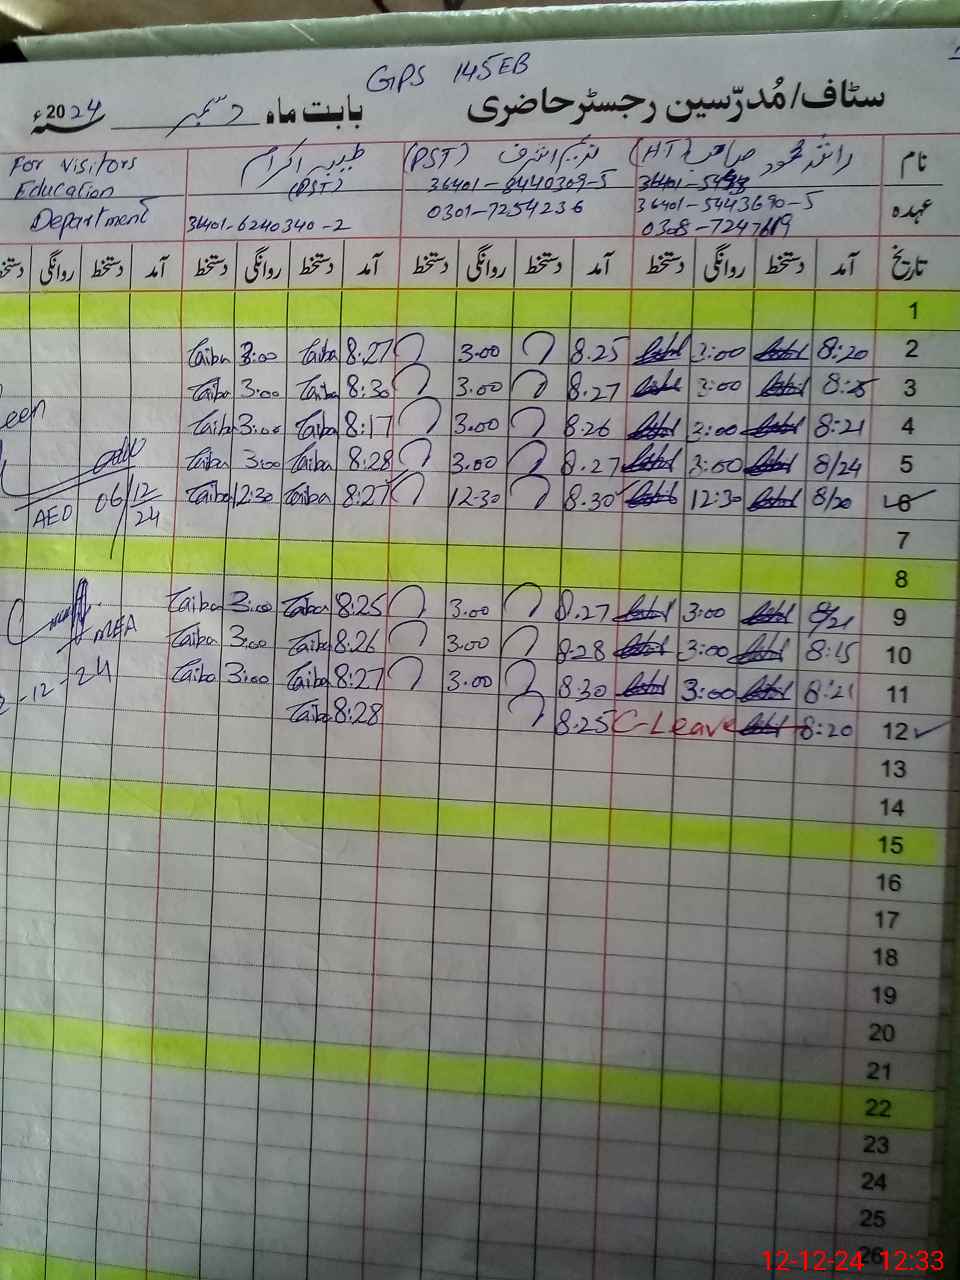 GPS 145EB
سٹاف/مُدرّسین رجسٹر حاضری بابت ماہ دسمبر 2024ء
نام (HT) (PST) طیبہ اکرام (PST) For Visitors Education Department
عہدہ 36401-5443690-5 36401-8440309-5 36401-6240340-2
0301-7254236
تاریخ آمد دستخط روانگی دستخط آمد دستخط روانگی دستخط آمد دستخط روانگی دستخط آمد دستخط روانگی دستخط
1
2 8:20 3:00 8.25 3.00 8:27 Taiba 3:00 Taiba
3 3:00 8.27 3.00 8:30 Taiba 3:00 Taiba
4 8:21 3:00 8.26 3.00 8:17 Taiba 3:00 Taiba
5 8/24 3:00 8.27 3.00 8:28 Taiba 3:00 Taiba
6 8/20 12:30 8.30 12-30 8:27 Taiba 12:30 Taiba 06/12/24 AEO
7
8
9 8/21 3:00 8.27 3.00 8:25 Taiba 3:00 Taiba
10 8:15 3:00 8.28 3.00 8:26 Taiba 3:00 Taiba MEA
11 8:21 3:00 8.30 3.00 8:27 Taiba 3:00 Taiba -12-24
12 8:20 C-Leave 8.25 8:28 Taiba
13
14
15
16
17
18
19
20
21
22
23
24
25
26
12-12-24 12:33